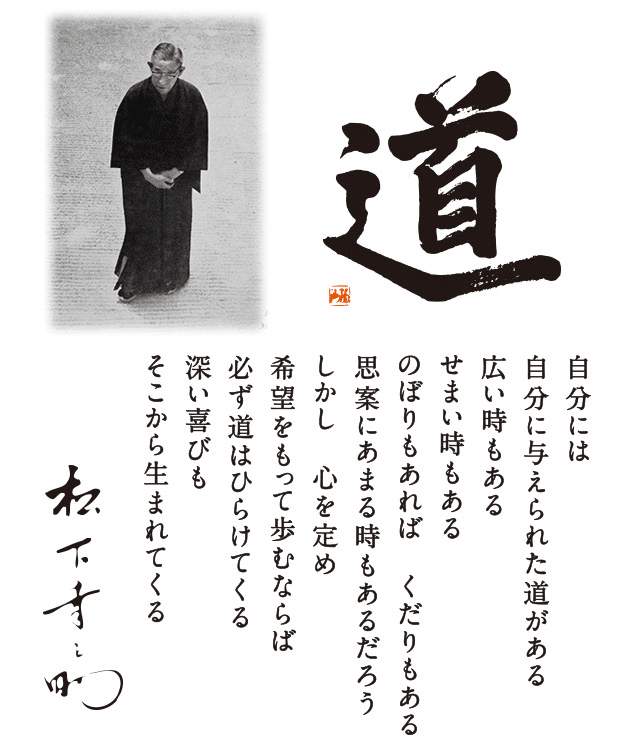 道
自分には
自分に与えられた道がある
広い時もある
せまい時もある
のぼりもあれば　くだりもある
思案にあまる時もあるだろう
しかし　心を定め
希望をもって歩むならば
必ず道はひらけてくる
深い喜びも
そこから生まれてくる
松下幸之助